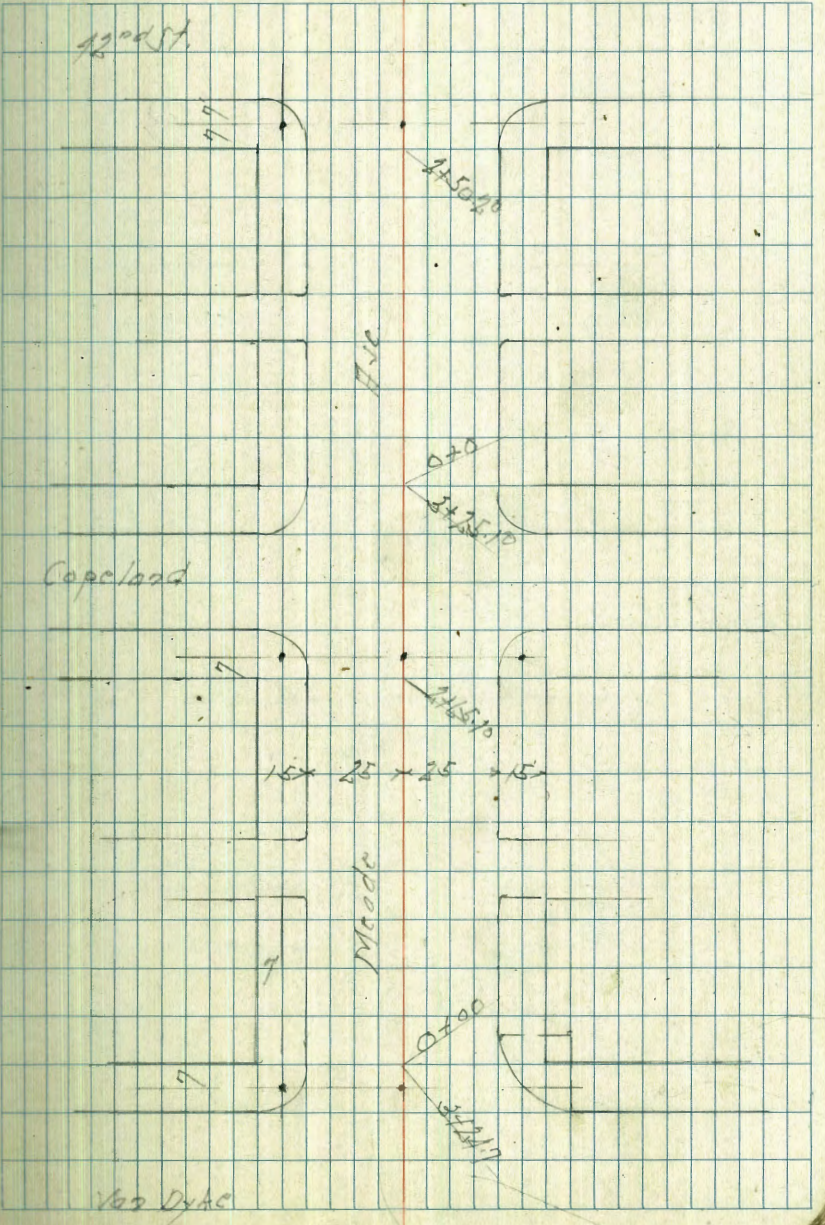 42nd St.
7 7
2+50.20
Ave
0+0
3+25.10
Copeland
7
2+65.10
15 25 25 15
Meade
7
0+00
7
3+24.7
Van Dyke